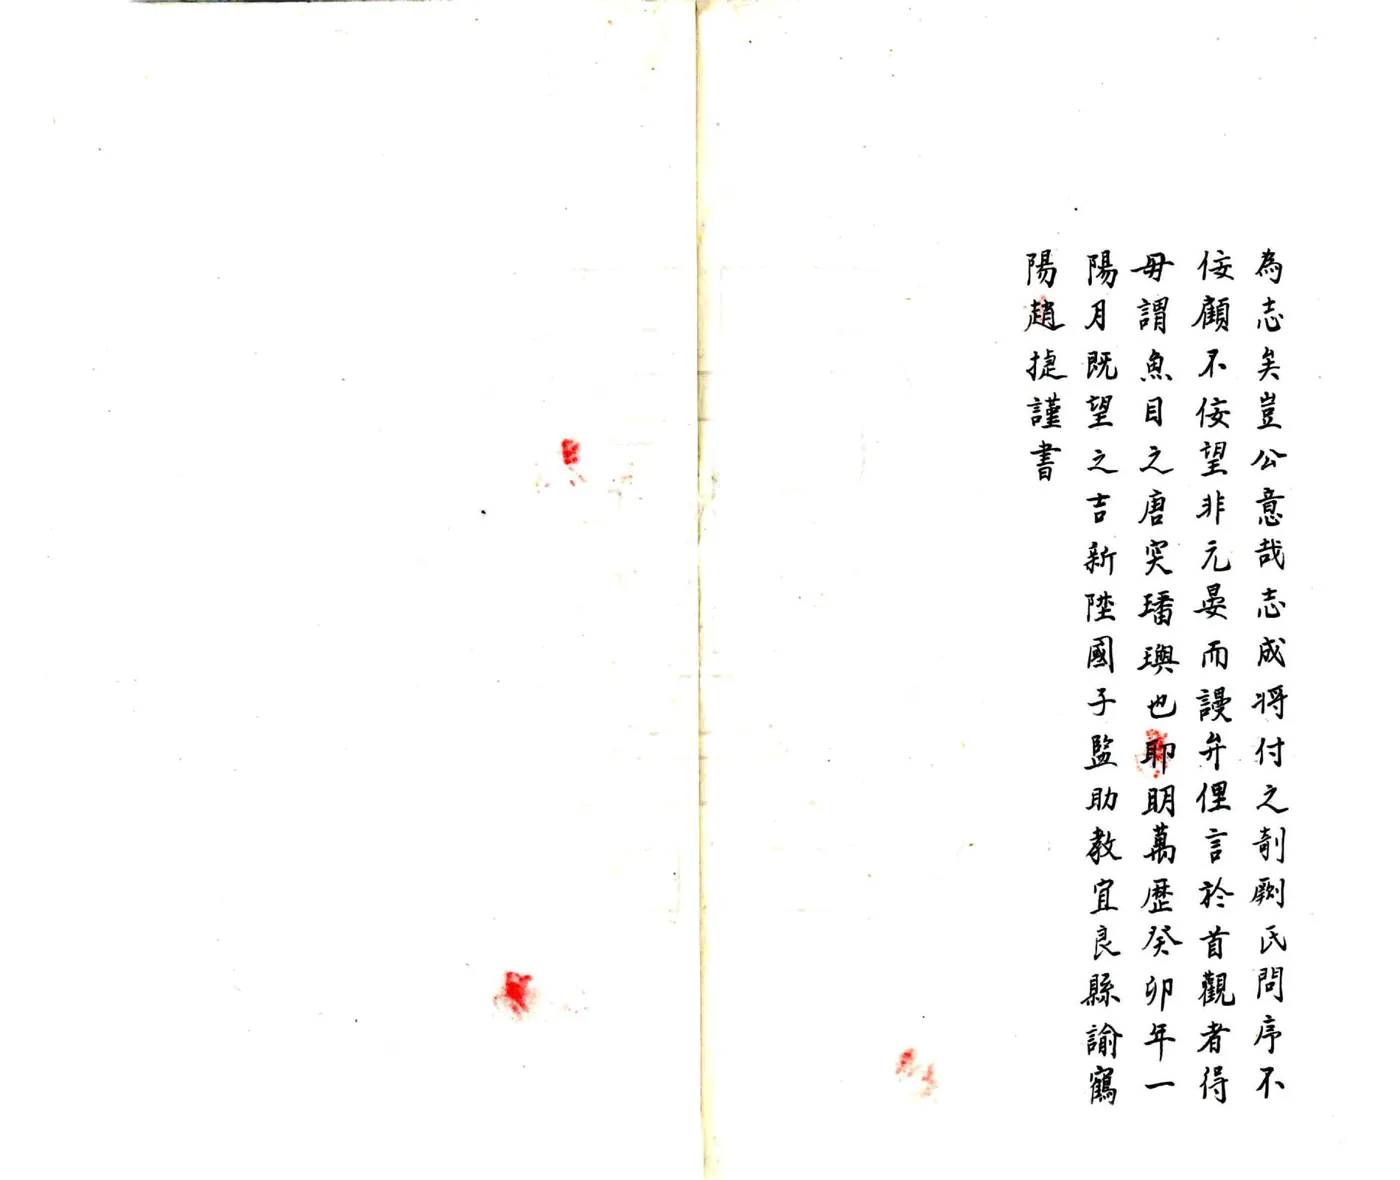 為志矣豈公意哉志成將付之剞劂氏問序不
佞顧不佞望非元晏而謾弁俚言於首觀者得
毋謂魚目之唐突璠璵也耶明萬歷癸卯年一
陽月既望之吉新陞國子監助教宜良縣諭鶴
陽趙捷謹書